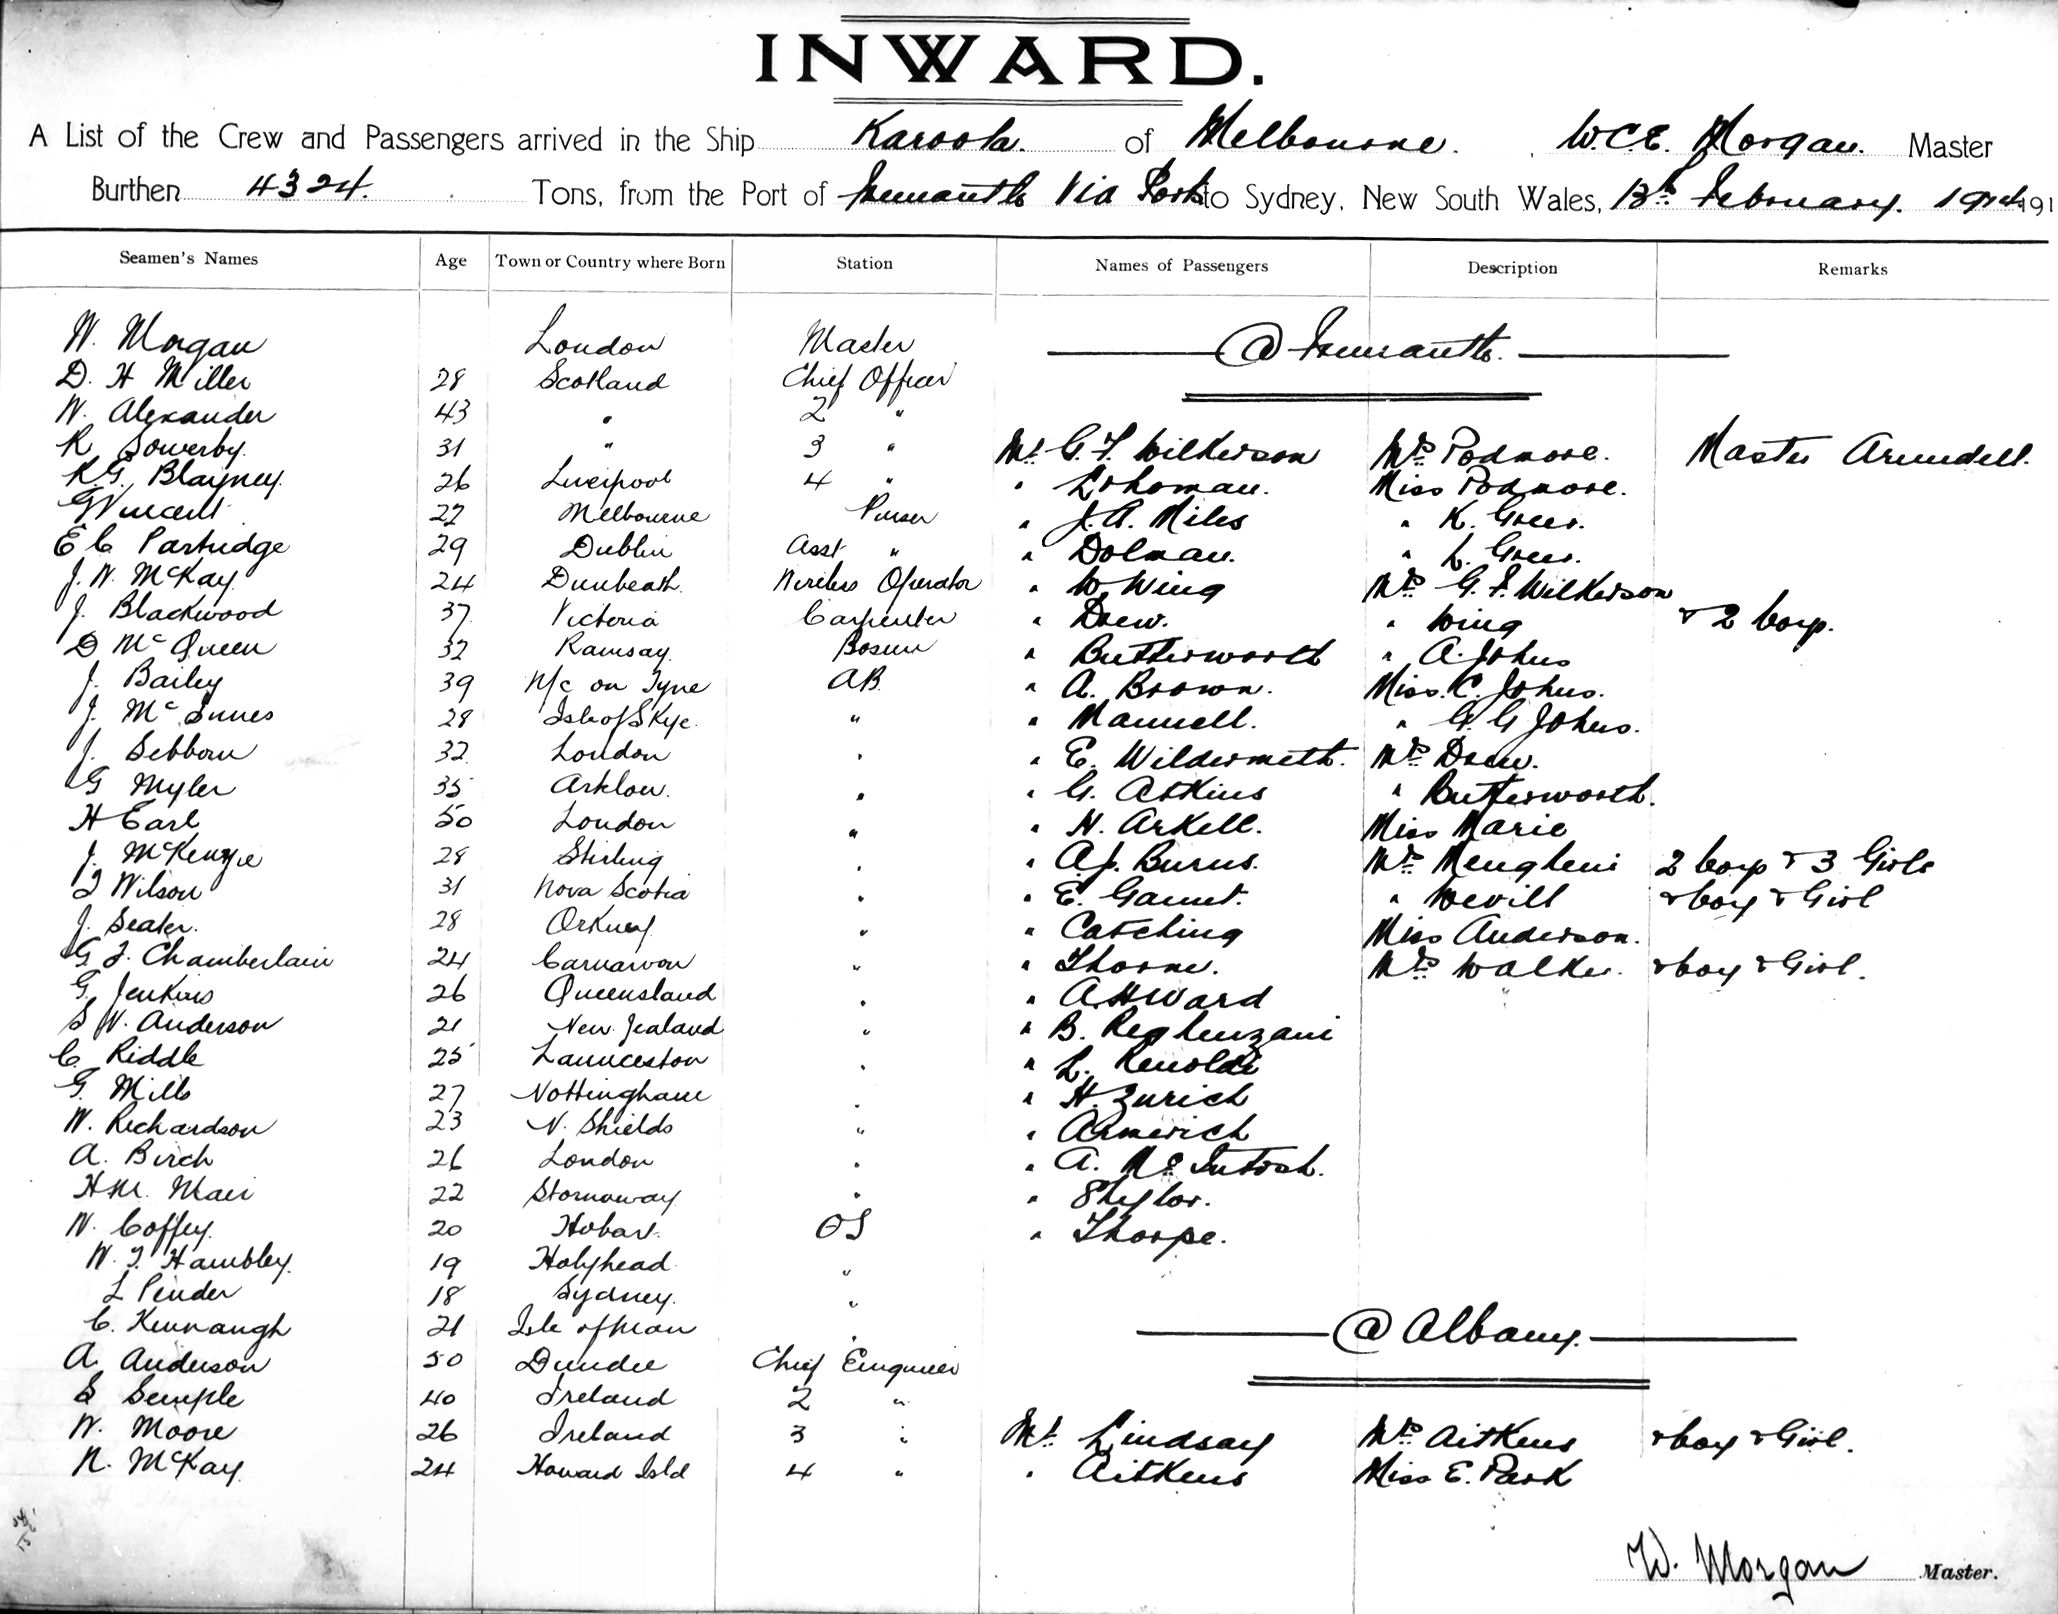 INWARD.
A List of the Crew and Passengers arrived in the Ship Karoola. of Melbourne. W.C.E. Morgan. Master
Burthen 4324. Tons, from the Port of Fremantle Via Ports to Sydney, New South Wales, 13th February. 1914 191
Seamen's Names Age Town or Country where Born Station Names of Passengers Description Remarks
W. Morgan London Master
@ Fremantle.
D. H Miller 28 Scotland Chief Officer
W. Alexander 43 " 2 "
R Sowerby. 31 " 3 " Mr. G. F. Wilkerson Mrs Podmore. Master Arundell.
R.G. Blayney. 26 Liverpool 4 " " Lohoman. Miss Podmore.
G Vincent 27 Melbourne Purser " J. A. Miles " K. Greer.
E C Partridge 29 Dublin Asst " " Dolman. " L. Greer.
J. W. McKay. 24 Dunbeath. Wireless Operator " W Wing Mrs G. F. Wilkerson
J. Blackwood 37 Victoria Carpenter " Drew. " Wing & 2 boys.
D McQueen 32 Ramsay. Bosun " Butterworth " A. Johns
J. Bailey 39 N/c on Tyne AB. " A. Brown. Miss. C. Johns.
J. McInnes 28 Isle of Skye. " " Mannell. " G. G Johns.
J. Sebborn 32 London " " E. Wildermeth. Mrs Drew.
G Myler 35 Arklow. " " G. Atkins " Butterworth.
H Earl 50 London " " H. Arkell. Miss Marie
J. McKenzie 28 Stirling " " A.J. Burns. Mrs Mengheni 2 boys & 3 Girls
J Wilson 31 Nova Scotia " " E. Gamut. " Wevill & boy & Girl
J. Seater. 28 Orkney " " Catching Miss Anderson.
G J. Chamberlain 24 Carnarvon " " Thorne. Mrs Walker. & boy & Girl.
G. Jenkins 26 Queensland " " A. H Ward
S W. Anderson 21 New Zealand " " B. Reghenzani
C. Riddle 25 Launceston " " L. Renoldi
G. Mills 27 Nottingham " " H. Zurich
W. Richardson 23 N. Shields " " Armerich
A. Birch 26 London " " A. McIntosh.
H M. Mair 22 Stornoway. " " Shylor.
W. Coffey. 20 Hobart. OS " Thorpe.
W. T. Hambley. 19 Holyhead "
L Pender 18 Sydney. "
C. Kennaugh 21 Isle of Man "
@ Albany.
A. Anderson 50 Dundee Chief Engineer
S Semple 40 Ireland 2 "
W. Moore 26 Ireland 3 " Mr. Lindsay Mrs Aitkens & boy & Girl.
N. McKay. 24 Howard Isld 4 " " Aitkens Miss E. Park
W. Morgan Master.